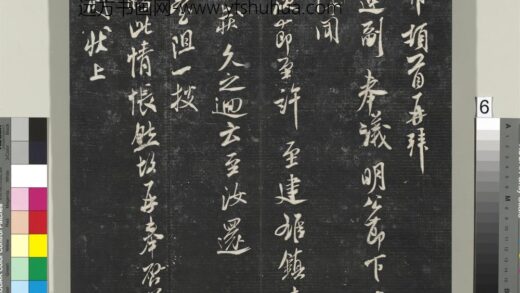 远方书画网 www.yfshuhua.com
頓首再拜
運副 奉議明公節下
聞
節至許 至建雄鎮
久之迴云至汝還
阻一披
此情悵然故再奉啓
狀上
6